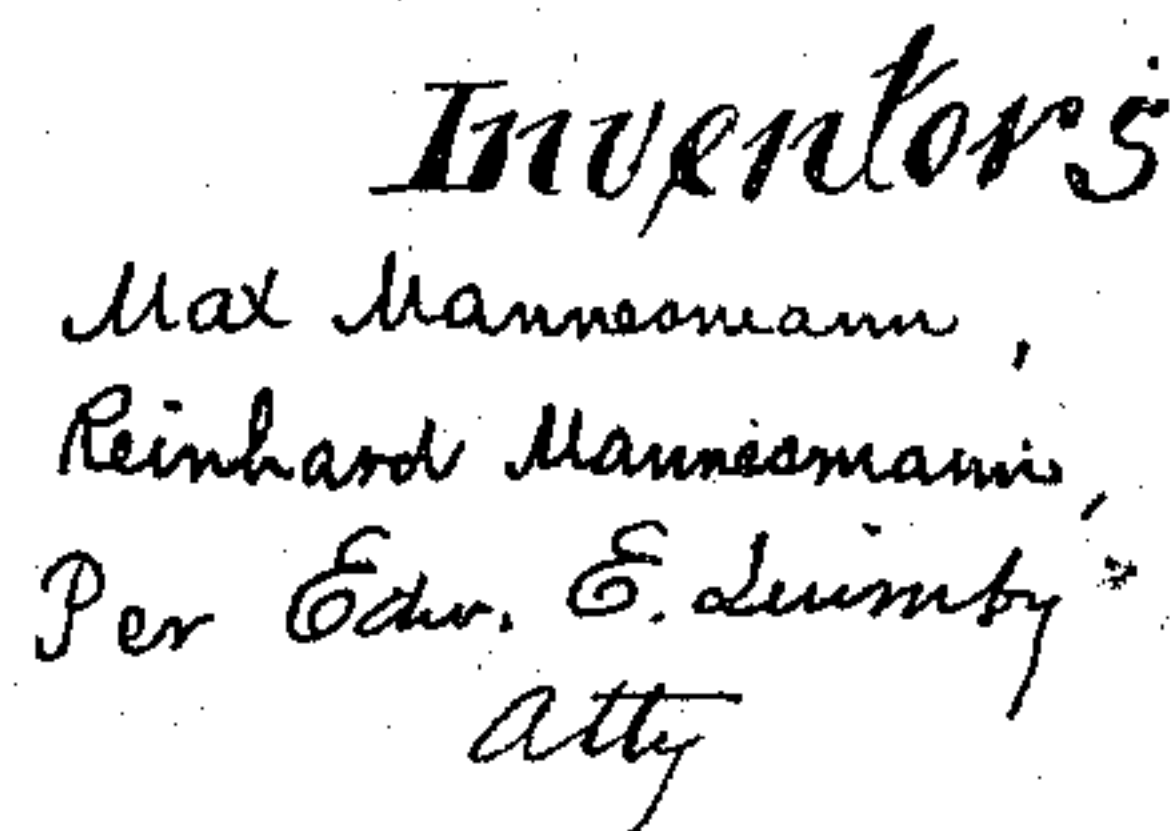 Inventors
Max Mannesmann,
Reinhard Mannesmann,
Per Edw. E. Quimby
Atty